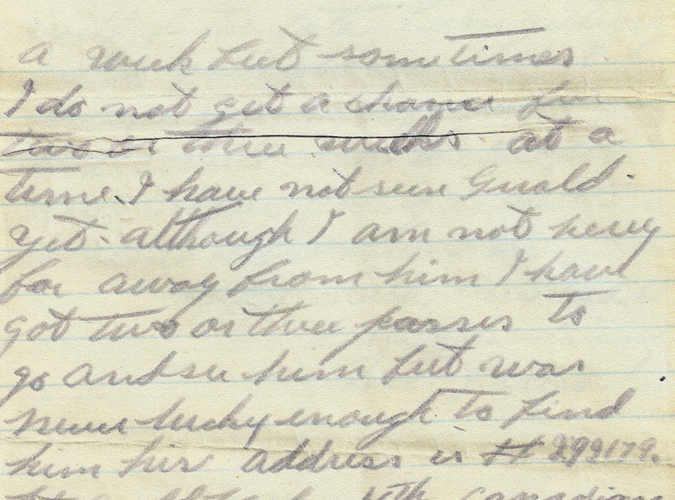 a week but sometimes
I do not get a chance for
two or three weeks at a
time. I have not seen Gerald
yet. although I am not very
far away from him I have
got two or three passes to
go and see him but was
never lucky enough to find
him his address is # 292179.
4th Canadian